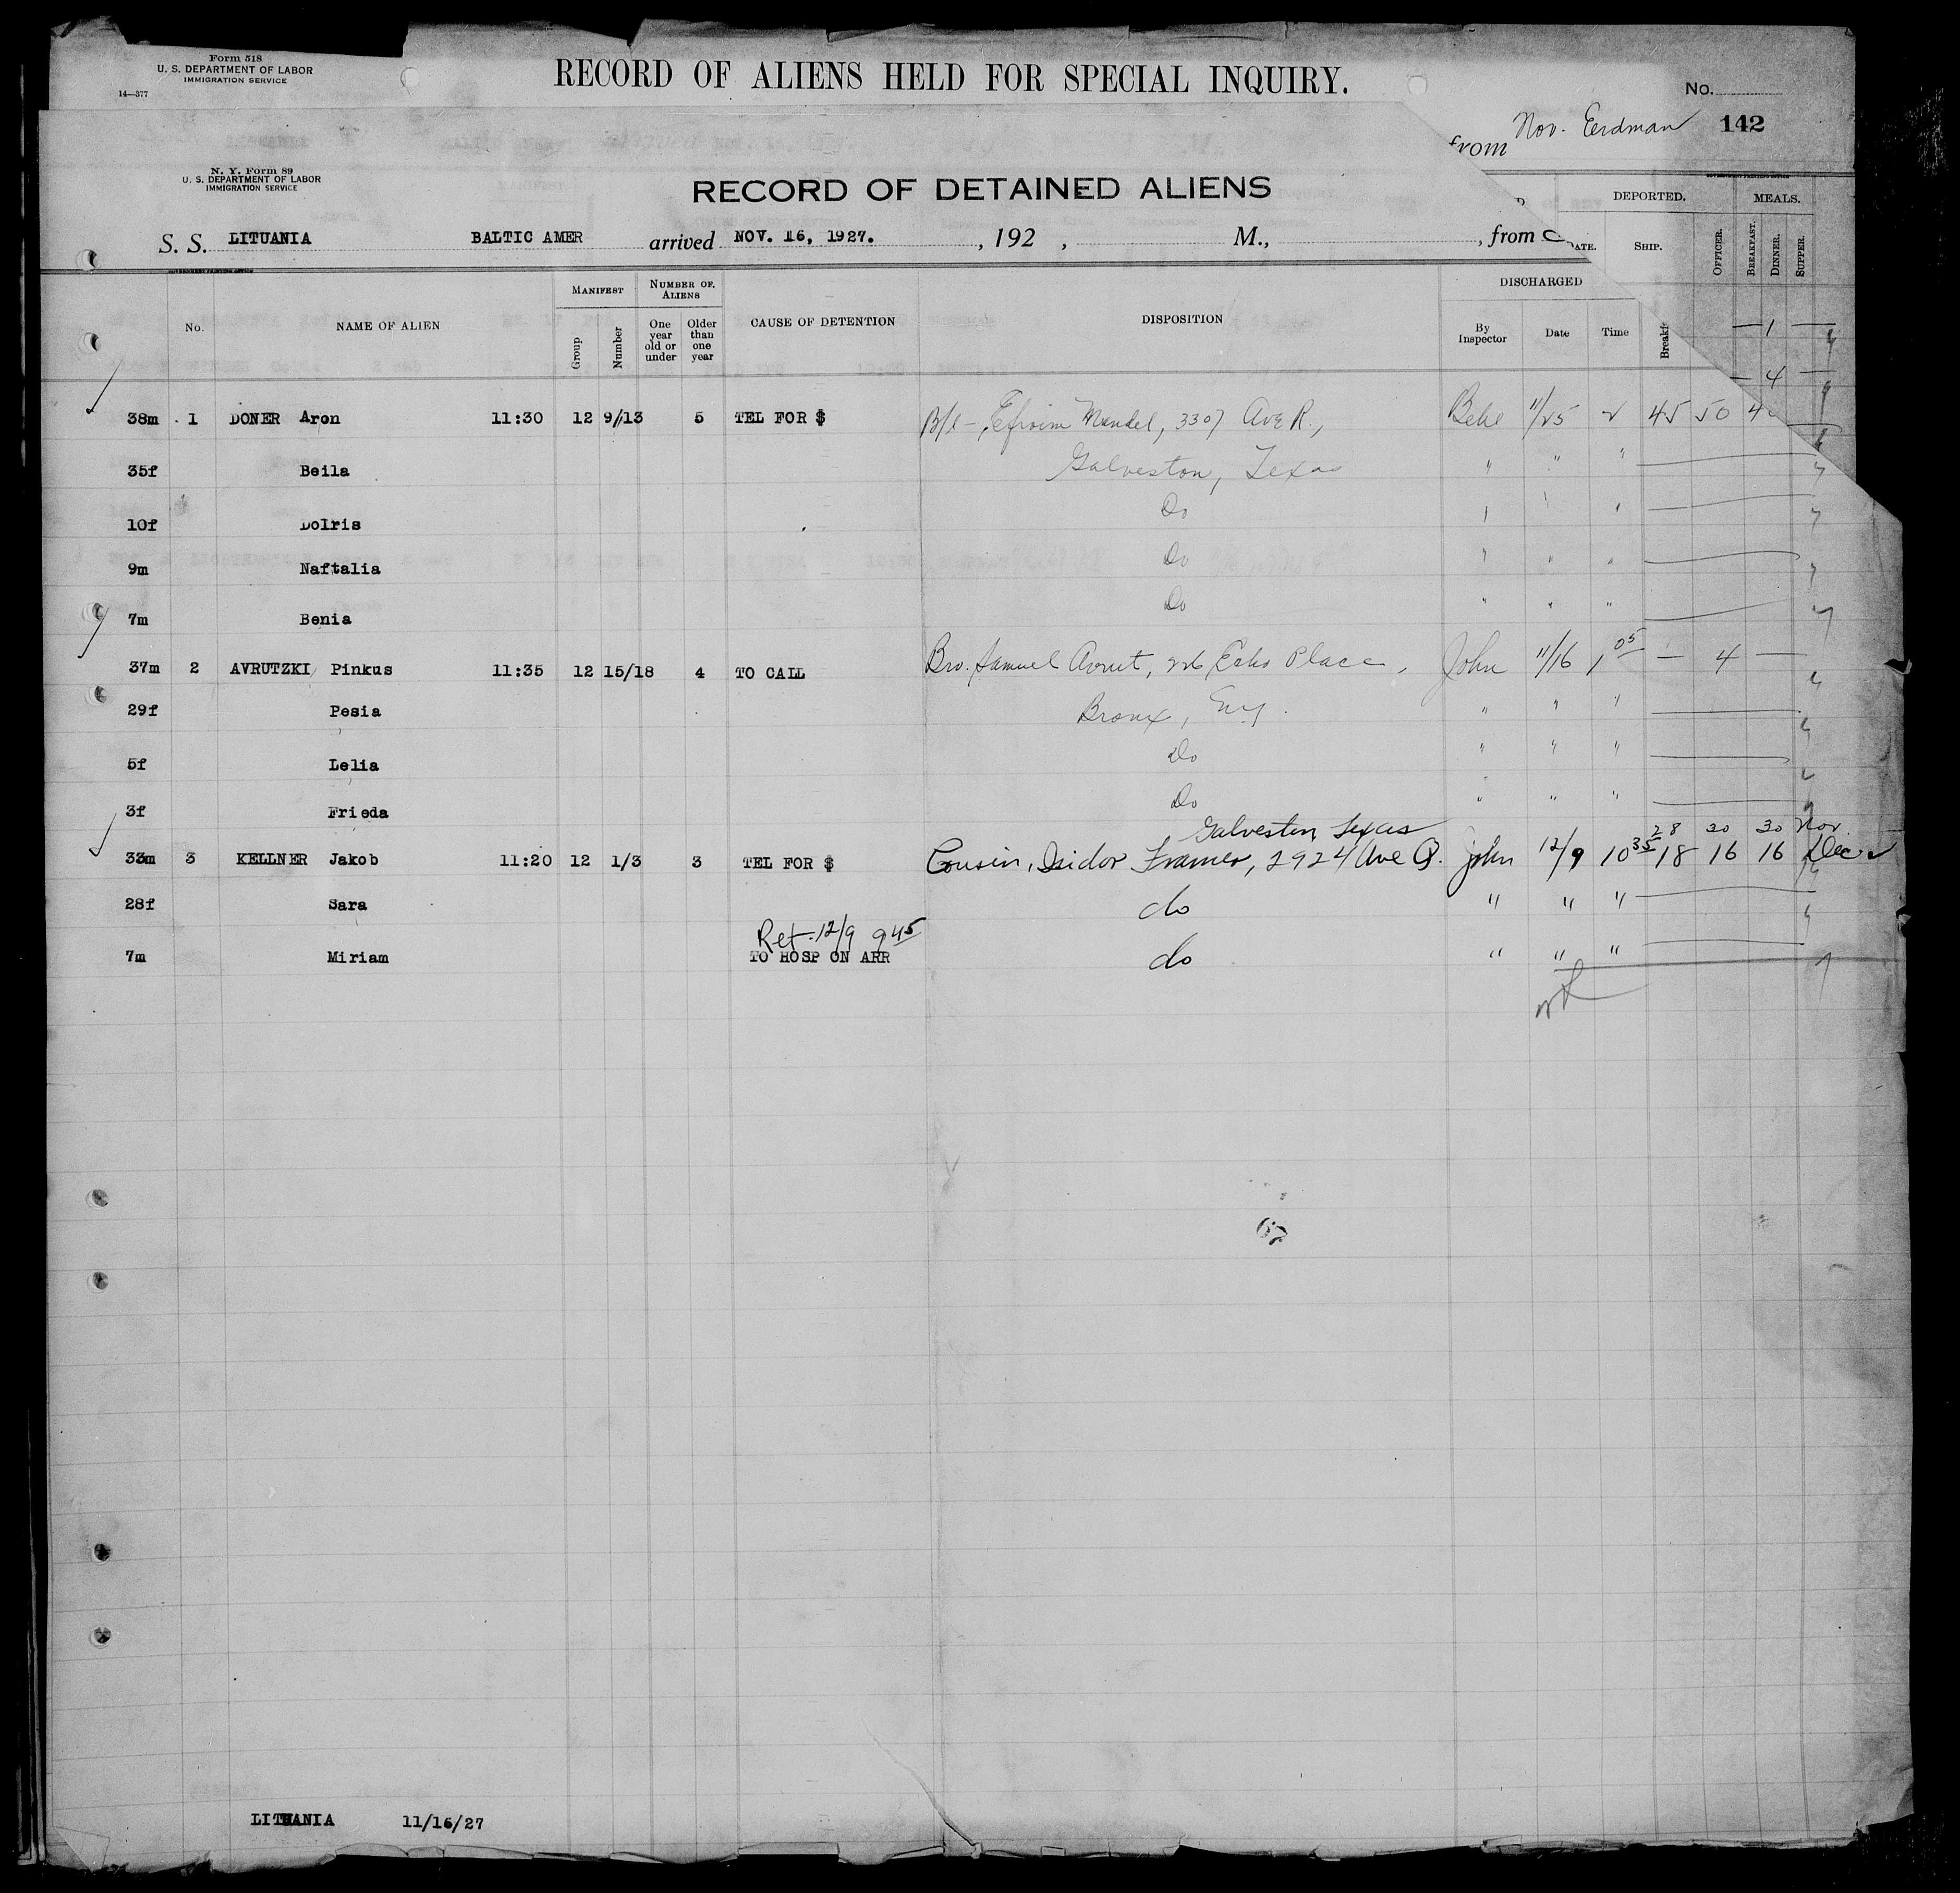 Form 518
U. S. DEPARTMENT OF LABOR
IMMIGRATION SERVICE
14—377
RECORD OF ALIENS HELD FOR SPECIAL INQUIRY.
No.
from Nov. Erdman 142
N. Y. Form 89
U. S. DEPARTMENT OF LABOR
IMMIGRATION SERVICE
RECORD OF DETAINED ALIENS
DEPORTED. MEALS.
DATE. SHIP. OFFICER. BREAKFAST. DINNER. SUPPER.
S. S. LITUANIA BALTIC AMER arrived NOV. 16, 1927. , 192 , M., , from
No. NAME OF ALIEN MANIFEST Group Number NUMBER OF ALIENS One year old or under Older than one year CAUSE OF DETENTION DISPOSITION DISCHARGED By Inspector Date Time
1
4
38m 1 DONER Aron 11:30 12 9/13 5 TEL FOR $ B/l - Efroim Mandel, 3307 Ave R., 11/25 2 45 50
35f Beila Galveston, Texas " " "
10f Dolris Do
9m Naftalia Do " " "
7m Benia Do " " "
37m 2 AVRUTZKI Pinkus 11:35 12 15/18 4 TO CALL Bro. Samuel Avrut, 226 Echo Place, John 11/16 1 05 — 4 —
29f Pesia Bronx, Ny. " " "
5f Lelia Do " " "
3f Frieda Do " " "
Galveston Texas 28 30 30 Nov.
33m 3 KELLNER Jakob 11:20 12 1/3 3 TEL FOR $ Cousin, Isidor Framer, 2924 Ave Q. John 12/9 10 35 18 16 16 Dec
28f Sara do " " "
Ret. 12/9 9 45
7m Miriam TO HOSP ON ARR do " " "
67
LITUANIA 11/16/27